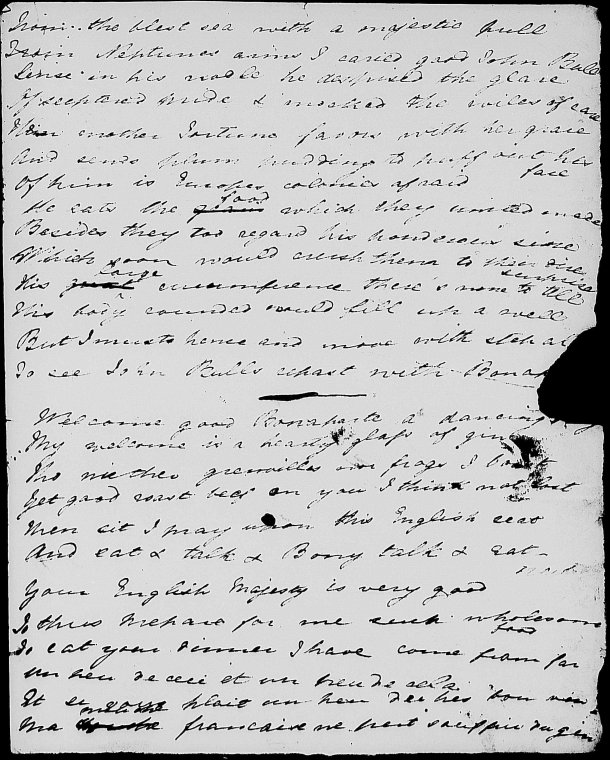 From the blest sea with a majestic pull
From Neptunes arms I caried good John Bull
Sense in his nodle he despised the glare
Of sceptered pride & mocked the wiles of care
Him mother Fortune favors with her grace
And sends plum pudding to puff out his face
Of him is Europes colonies afraid
He eats the food which they united made
Besides they too regard his ponderous size
Which soon would crush them to their dire surprise
His large circumference there's none to tell
His body rounded would fill up a well
But I must hence and move with step
To see John Bulls repast with
Welcome good Bonaparte a dancing
My welcome is a hearty glass of gin
Tho niether grenvilles nor frogs I
Yet good roast beef on you I think not lost
Then sit I pray upon this English seat
And eat & talk & Bony talk & eat
Your English Majesty is very good
To thus prepare for me such wholesome food
To eat your dinner I have come from far
un peu de ceci et un peu de cela
Et si vous plait un peu de bon
Ma francaise ne peut souffrir du gin